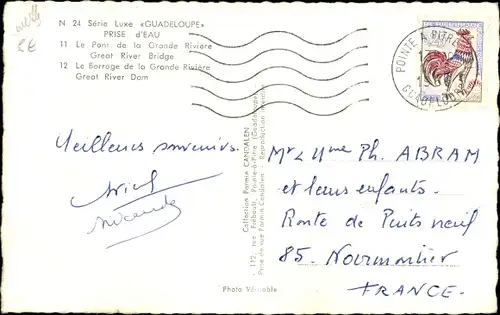 N 24 Série Luxe «GUADELOUPE»
PRISE d'EAU
11 Le Pont de la Grande Rivière
Great River Bridge
12 Le Barrage de la Grande Rivière
Great River Dam
POINTE A PITRE
GUADELOUPE
Meilleurs souvenirs.
Collection Formin CANDALEN
112, rue Frébault, Pointe-à-Pitre (Guadeloupe)
Prise de vue Formin Candalen - Reproduction interdite
Mr & Mme Ph. ABRAM
et leurs enfants.
Route de Puits neuf
85. Noirmoutier
FRANCE.
Photo Véritable